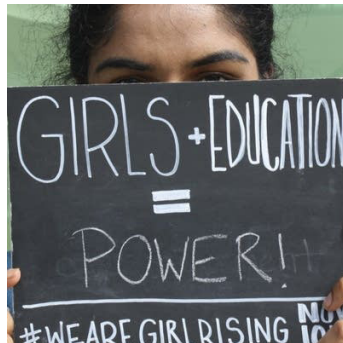 GIRLS + EDUCATION
=
POWER!
#WEAREGIRLRISING